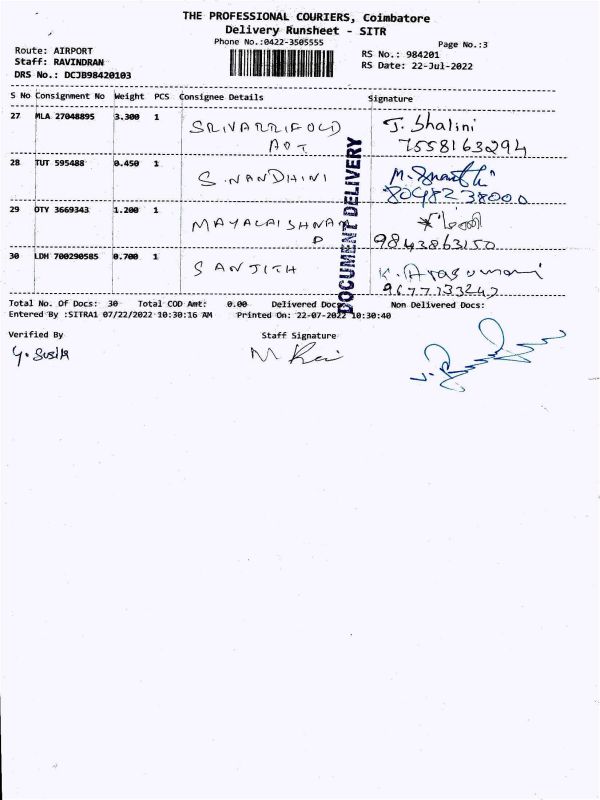 THE PROFESSIONAL COURIERS, Coimbatore
Delivery Runsheet - SITR
Phone No.:0422-3505555
Page No.:3
Route: AIRPORT
RS No.: 984201
Staff: RAVINDRAN
RS Date: 22-Jul-2022
DRS No.: DCJB98420103
S No Consignment No Weight PCS Consignee Details Signature
27 MLA 27048895 3.300 1 J. Shalini
7558163294
28 TUT 595488 0.450 1 S. NANDHINI
29 OTY 3669343 1.200 1
9843863150
30 LDH 700290585 0.700 1 SANJITH
DOCUMENT DELIVERY
Total No. Of Docs: 30 Total COD Amt: 0.00 Delivered Docs: Non Delivered Docs:
Entered By :SITRA1 07/22/2022 10:30:16 AM Printed On: 22-07-2022 10:30:40
Verified By Staff Signature